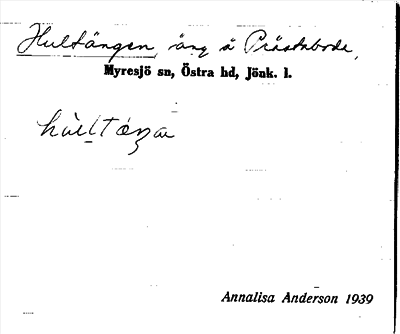 Hultängen, äng å Prästabode,
Myresjö sn, Östra hd, Jönk. l.
Annalisa Anderson 1939